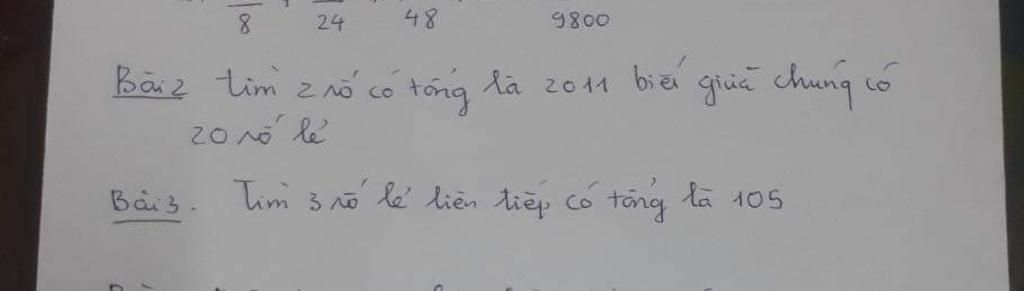 8 24 48 9800
Bài 2 Tìm 2 số có tổng là 2011 biết giữa chúng có
20 số lẻ
Bài 3. Tìm 3 số lẻ liên tiếp có tổng là 105